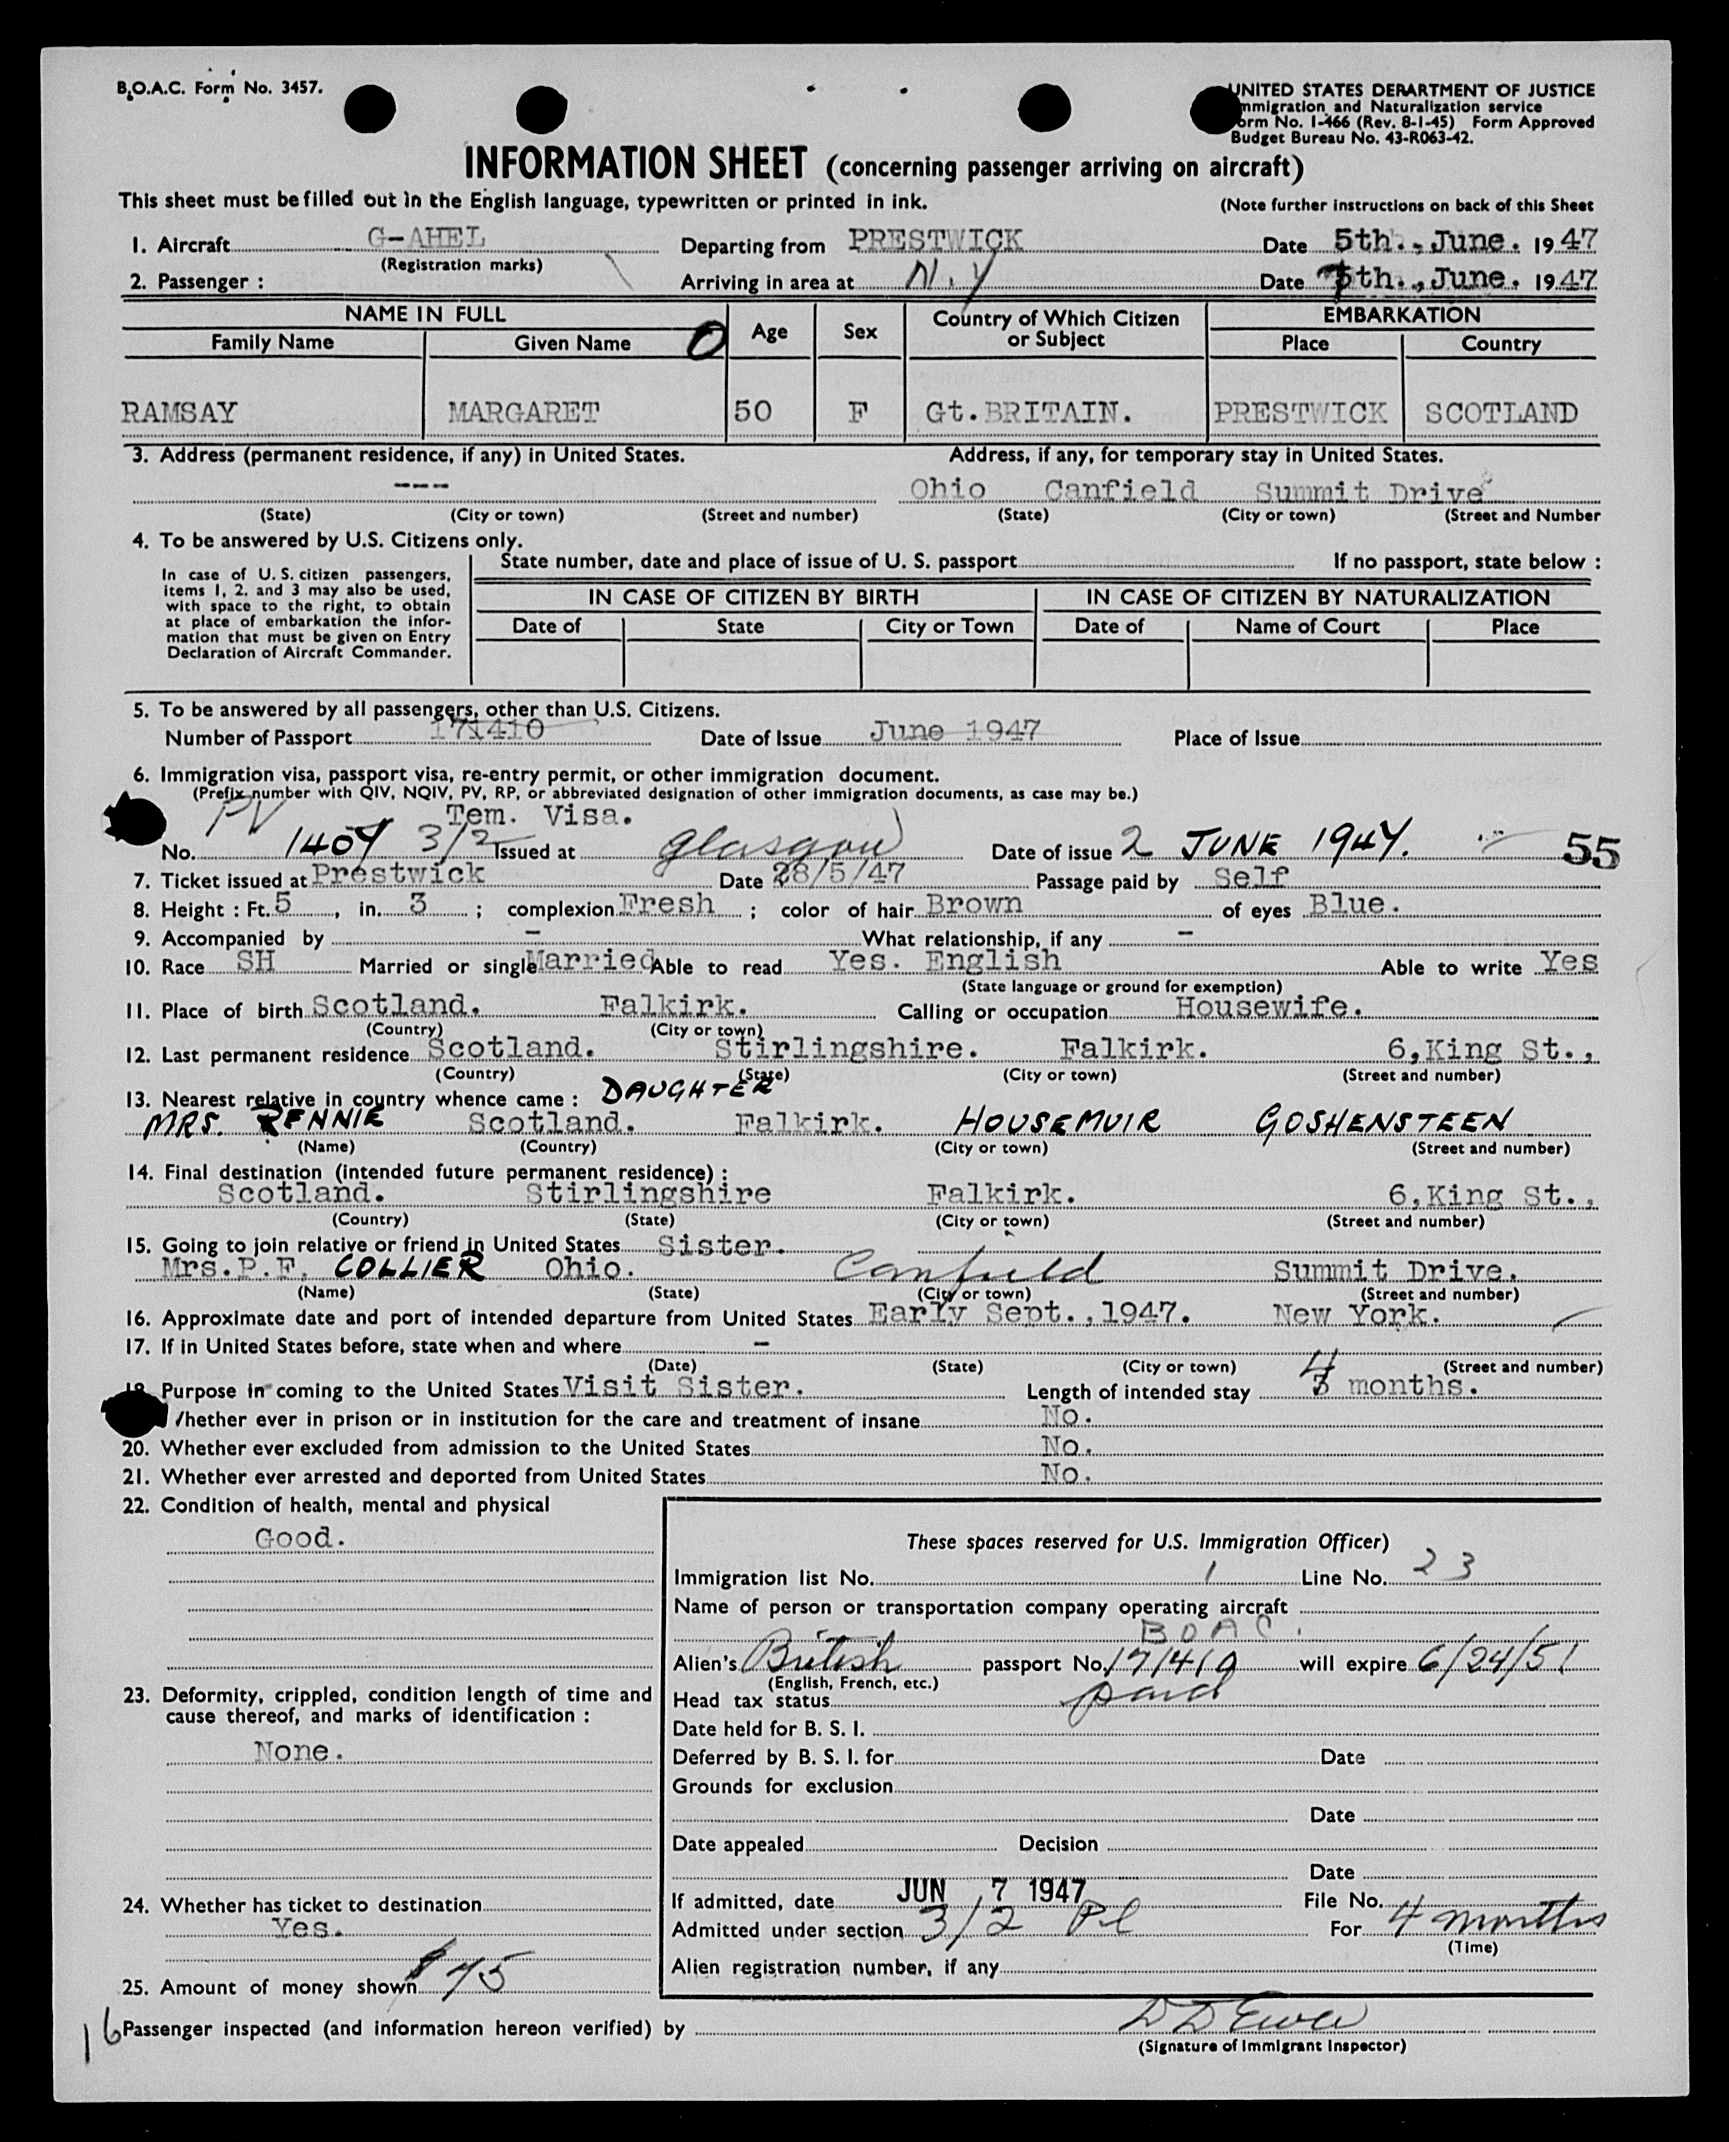 B.O.A.C. Form No. 3457.
UNITED STATES DEPARTMENT OF JUSTICE
mmigration and Naturalization service
orm No. I-466 (Rev. 8-1-45) Form Approved
Budget Bureau No. 43-R063-42.
INFORMATION SHEET (concerning passenger arriving on aircraft)
This sheet must be filled out in the English language, typewritten or printed in ink. (Note further instructions on back of this Sheet
1. Aircraft G-AHEL Departing from PRESTWICK Date 5th., June. 1947
(Registration marks)
2. Passenger : Arriving in area at N.Y Date 7th., June. 1947
NAME IN FULL Age Sex Country of Which Citizen or Subject EMBARKATION
Family Name Given Name O Place Country
RAMSAY MARGARET 50 F Gt.BRITAIN. PRESTWICK SCOTLAND
3. Address (permanent residence, if any) in United States. Address, if any, for temporary stay in United States.
--- Ohio Canfield Summit Drive
(State) (City or town) (Street and number) (State) (City or town) (Street and Number
4. To be answered by U.S. Citizens only.
State number, date and place of issue of U. S. passport If no passport, state below :
In case of U. S. citizen passengers,
items 1, 2. and 3 may also be used,
with space to the right, to obtain
at place of embarkation the infor-
mation that must be given on Entry
Declaration of Aircraft Commander.
IN CASE OF CITIZEN BY BIRTH IN CASE OF CITIZEN BY NATURALIZATION
Date of State City or Town Date of Name of Court Place
5. To be answered by all passengers, other than U.S. Citizens.
Number of Passport 171410 Date of Issue June 1947 Place of Issue
6. Immigration visa, passport visa, re-entry permit, or other immigration document.
(Prefix number with QIV, NQIV, PV, RP, or abbreviated designation of other immigration documents, as case may be.)
PV Tem. Visa.
No. 1407 3/2 Issued at Glasgow Date of issue 2 JUNE 1947. 55
7. Ticket issued at Prestwick Date 28/5/47 Passage paid by Self
8. Height : Ft. 5, in. 3 ; complexion Fresh ; color of hair Brown of eyes Blue.
9. Accompanied by - What relationship, if any -
10. Race SH Married or single Married Able to read Yes. English Able to write Yes
(State language or ground for exemption)
11. Place of birth Scotland. Falkirk. Calling or occupation Housewife.
(Country) (City or town)
12. Last permanent residence Scotland. Stirlingshire. Falkirk. 6,King St.,
(Country) (State) (City or town) (Street and number)
13. Nearest relative in country whence came : DAUGHTER
MRS. RENNIE Scotland. Falkirk. HOUSEMUIR GOSHENSTEEN
(Name) (Country) (City or town) (Street and number)
14. Final destination (intended future permanent residence) :
Scotland. Stirlingshire Falkirk. 6,King St.,
(Country) (State) (City or town) (Street and number)
15. Going to join relative or friend in United States Sister.
Mrs.P.F. COLLIER Ohio. Canfield Summit Drive.
(Name) (State) (City or town) (Street and number)
16. Approximate date and port of intended departure from United States Early Sept.,1947. New York.
17. If in United States before, state when and where -
(Date) (State) (City or town) (Street and number)
18. Purpose in coming to the United States Visit Sister. Length of intended stay 4 3 months.
Whether ever in prison or in institution for the care and treatment of insane No.
20. Whether ever excluded from admission to the United States No.
21. Whether ever arrested and deported from United States No.
22. Condition of health, mental and physical
Good.
These spaces reserved for U.S. Immigration Officer)
Immigration list No. 1 Line No. 23
Name of person or transportation company operating aircraft
B O A C.
Alien's British passport No. 171410 will expire 6/24/51
(English, French, etc.)
23. Deformity, crippled, condition length of time and
cause thereof, and marks of identification :
None.
Head tax status paid
Date held for B. S. I.
Deferred by B. S. I. for Date
Grounds for exclusion
Date
Date appealed Decision
Date
24. Whether has ticket to destination
Yes.
If admitted, date JUN 7 1947 File No.
Admitted under section 3/2 Pl For 4 months
(Time)
Alien registration number, if any
25. Amount of money shown $75
16 Passenger inspected (and information hereon verified) by
(Signature of Immigrant Inspector)